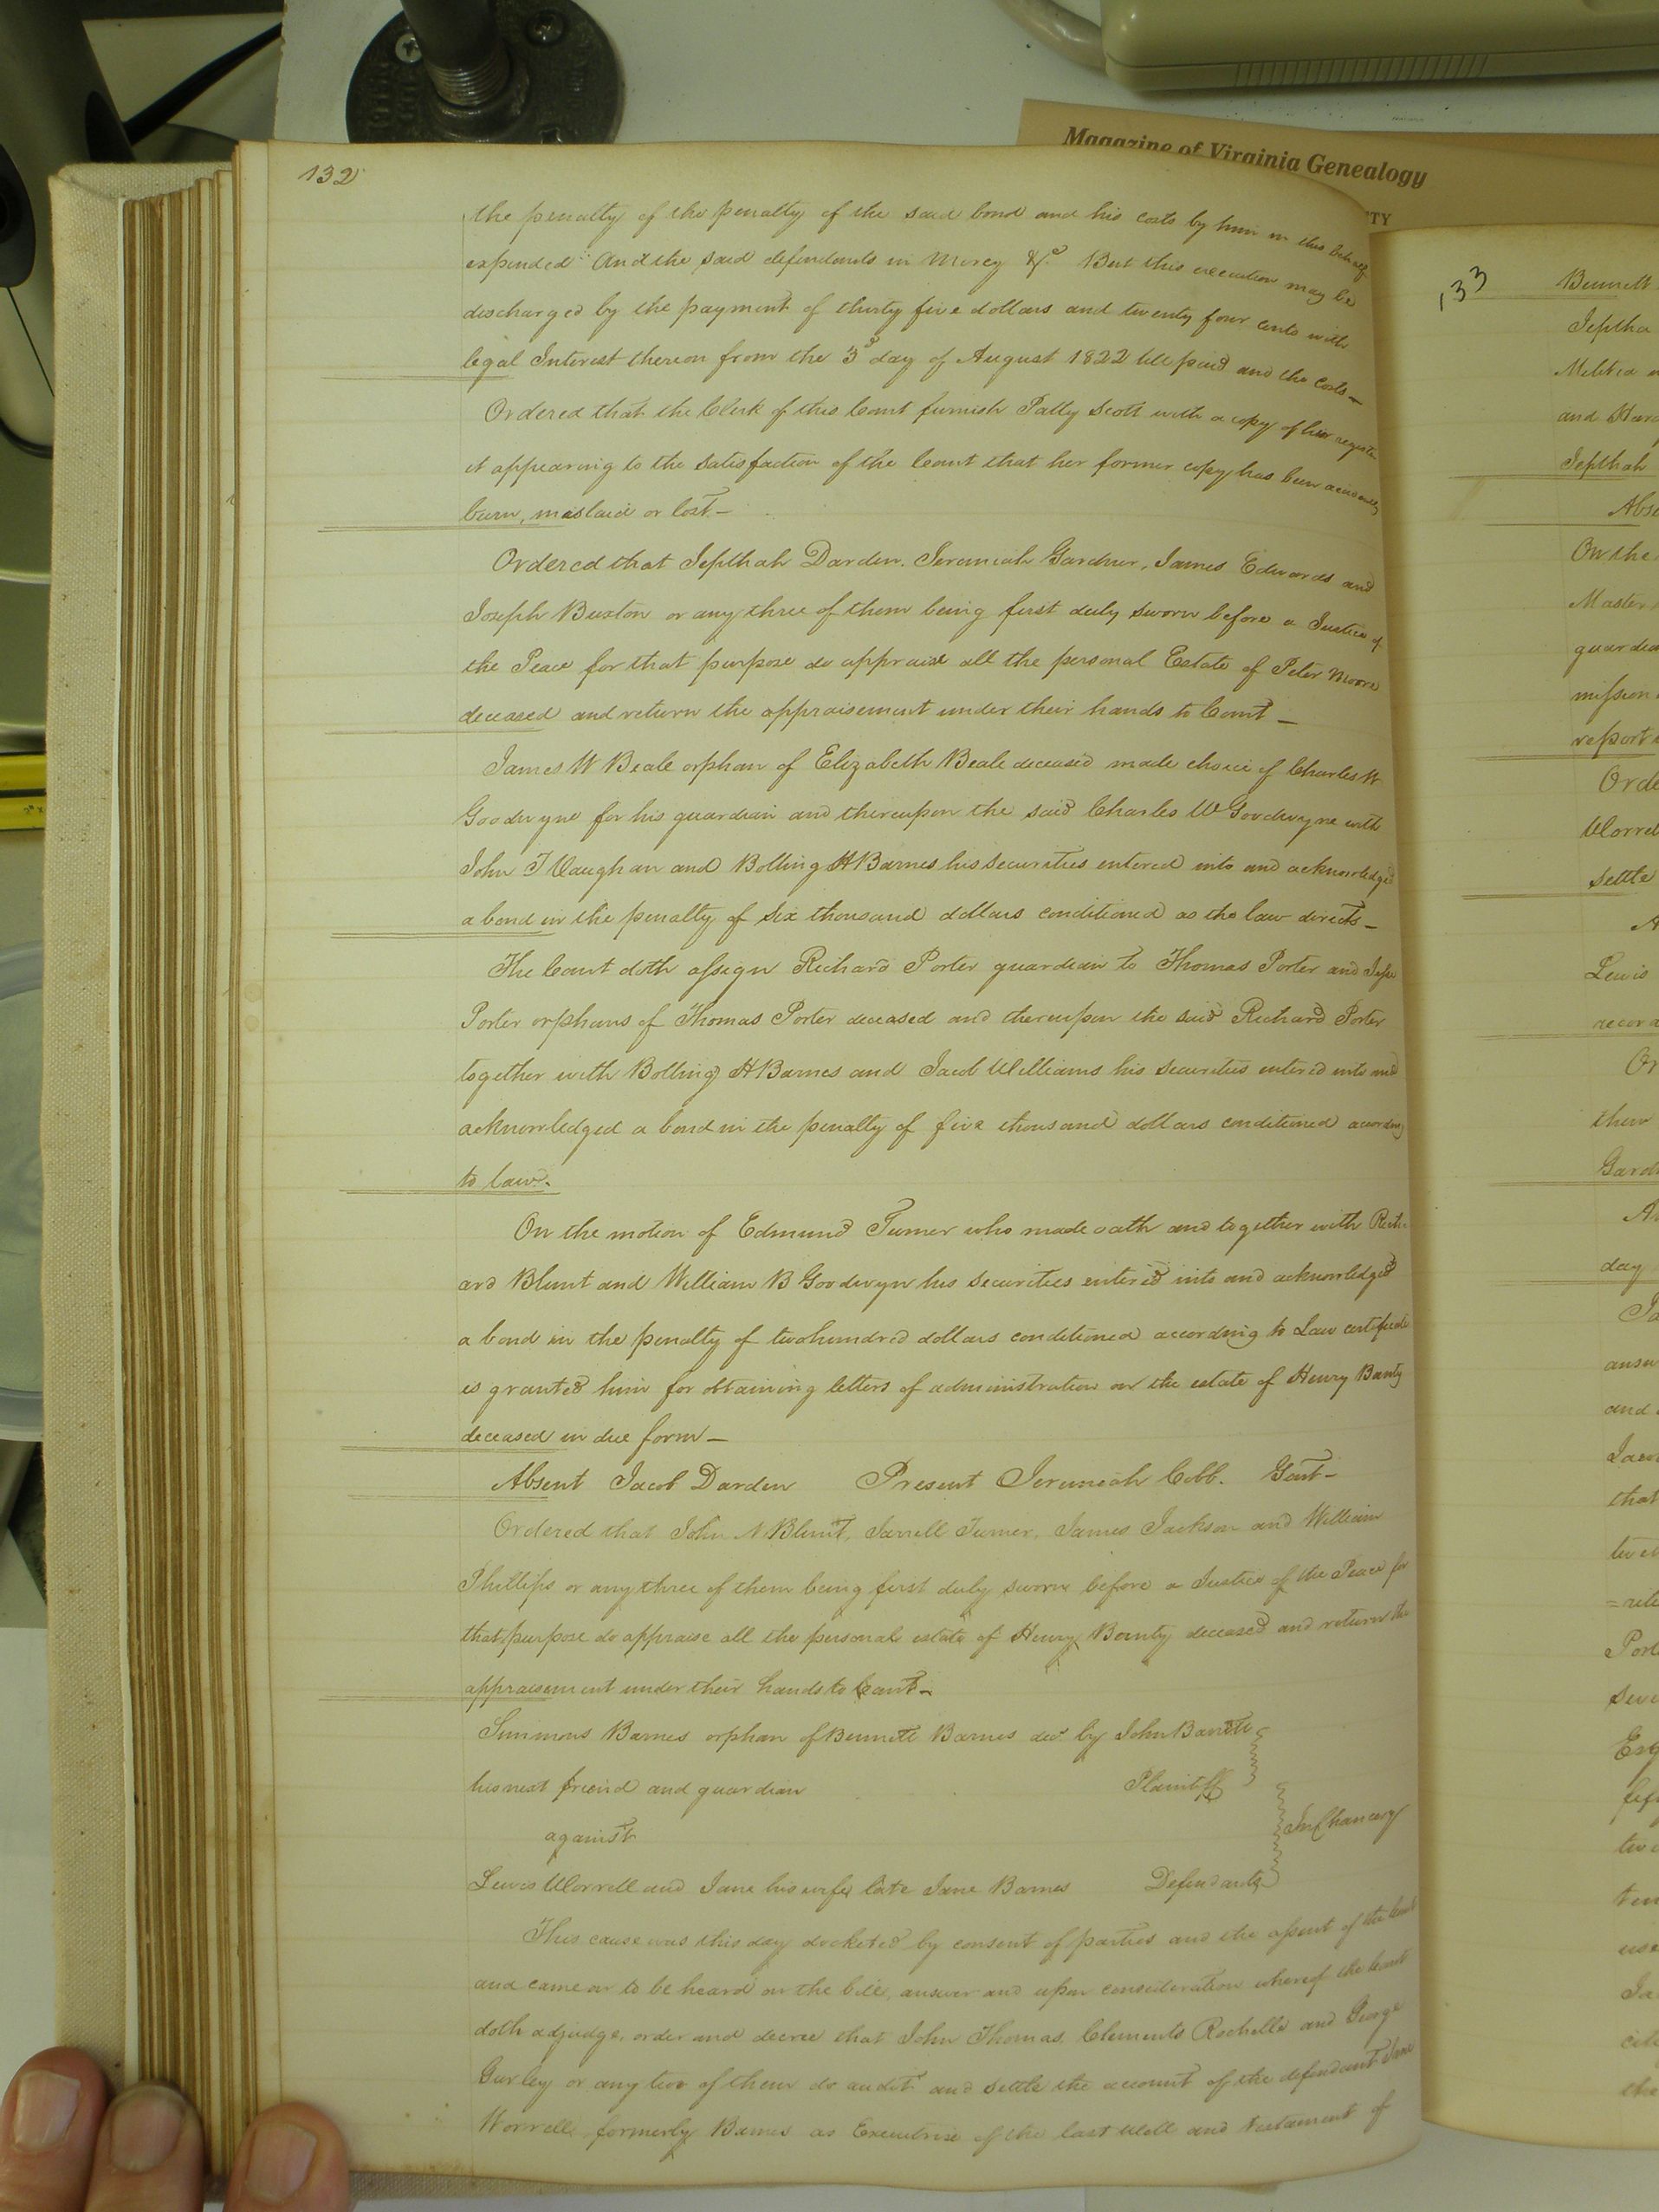 Magazine of Virginia Genealogy
TY
132
the penalty of the penalty of the said bond and his costs by him in this behalf
expended" And the said defendants in Mercy &c. But this execution may be
discharged by the payment of thirty five dollars and twenty four cents with
legal Interest thereon from the 3d day of August 1822 till paid and the costs—
Ordered that the Clerk of this Court furnish Patty Scott with a copy of her register
it appearing to the satisfaction of the Court that her former copy has been accidently
burn, mislaid or lost.—
Ordered that Jepthah Darden. Jeremiah Gardner, James Edwards and
Joseph Buxton or any three of them being first duly sworn before a Justice of
the Peace for that purpose do appraise all the personal Estate of Peter Moore
deceased and return the appraisement under their hands to Court—
James W Beale orphan of Elizabeth Beale deceased made choice of Charles W
Goodwyne for his guardian and thereupon the said Charles W Goodwyne with
John T Vaughan and Bolling H Barnes his securities entered into and acknowledged
a bond in the penalty of six thousand dollars conditioned as the law directs—
The Court doth assign Richard Porter guardian to Thomas Porter and Jesse
Porter orphans of Thomas Porter deceased and thereupon the said Richard Porter
together with Bolling H Barnes and Jacob Williams his securities entered into and
acknowledged a bond in the penalty of five thousand dollars conditioned according
to law.
On the motion of Edmund Turner who made oath and together with Rich-
ard Blunt and William B Goodwyn his securities entered into and acknowledged
a bond in the penalty of two hundred dollars conditioned according to Law certificate
is granted him for obtaining letters of administration on the estate of Henry Bounty
deceased in due form—
Absent Jacob Darden Present Jeremiah Cobb. Gent—
Ordered that John N Blunt, Jarrell Turner, James Jackson and William
Phillips or any three of them being first duly sworn before a Justice of the Peace for
that purpose do appraise all the personal estate of Henry Bounty deceased and return the
appraisement under their hands to Court—
Simmons Barnes orphan of Bennett Barnes decd. by John Barrett
his next friend and guardian Plaintiff
against In Chancery
Lewis Worrell and Jane his wife late Jane Barnes Defendants
This cause was this day docketed by consent of parties and the assent of the Court
and came on to be heard on the bill, answer and upon consideration whereof the Court
doth adjudge, order and decree that John Thomas, Clements Rochelle and George
Gurley or any two of them do audit and settle the account of the defendant Jane
Worrell formerly Barnes as Executrix of the last Will and testament of
133
Bennett
Jeptha
Militia
and Hard
Jepthah
Abse
On the
Master
guardia
mission
report
Orde
Worrel
settle
Lewis
record
Or
them
Gard
day
answ
and
Jacob
that
Port